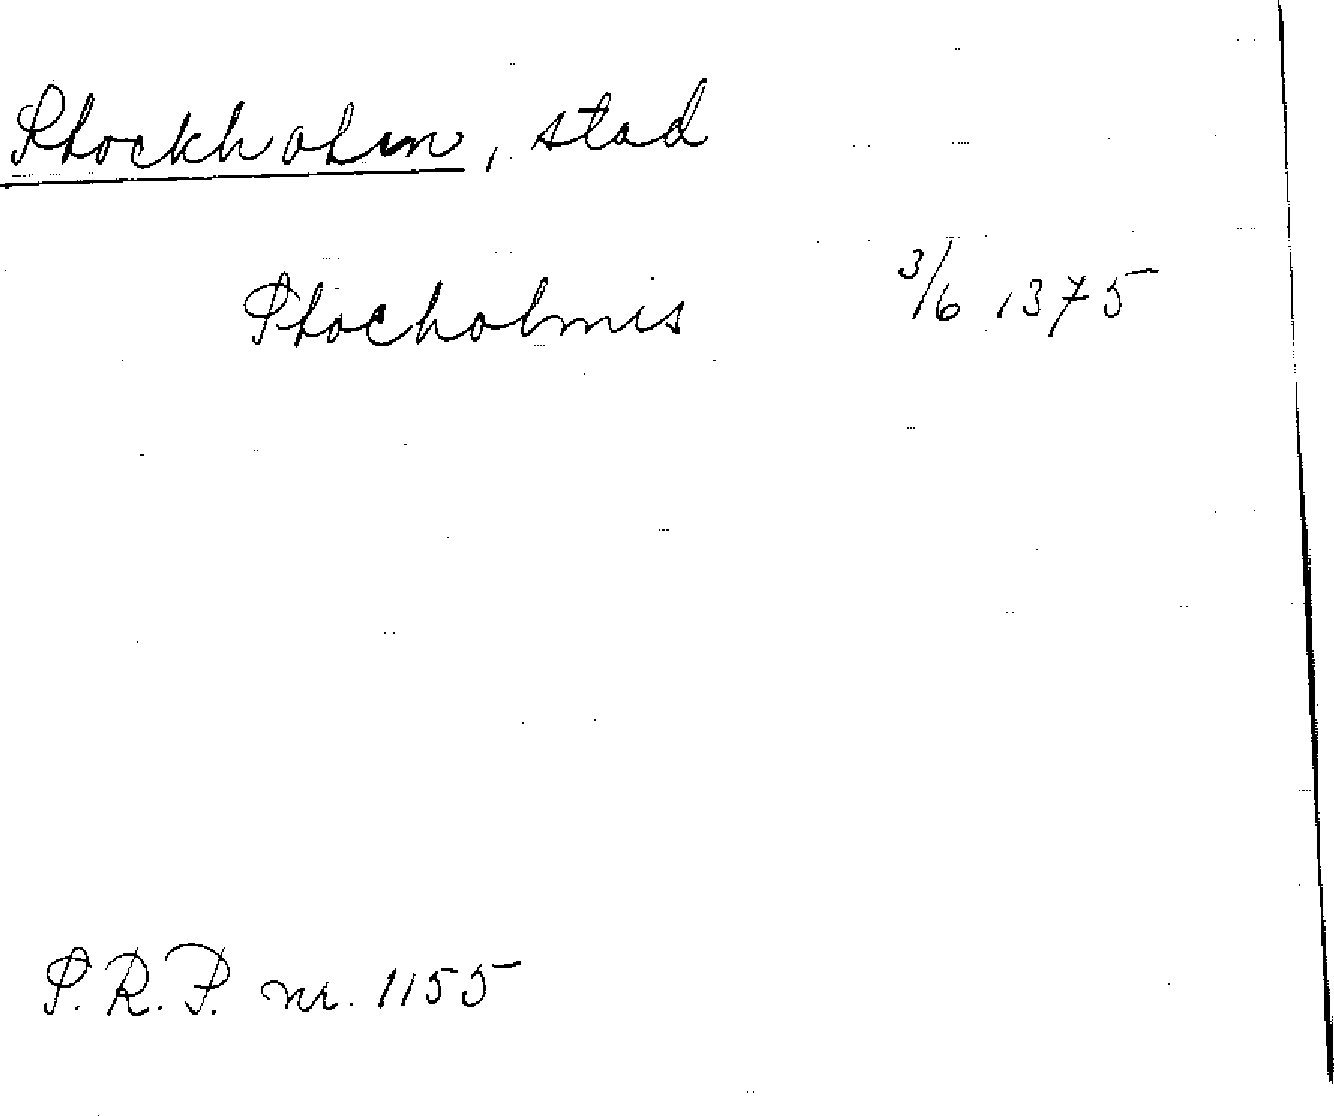 Stockholm, stad
Stocholmis 3/6 1375
S.R.P. nr. 1155